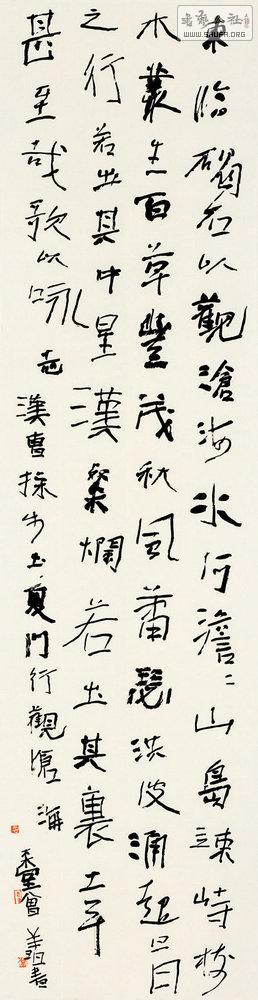 東臨碣石以觀滄海水何澹〻山島竦峙樹
木叢生百草豐茂秋風蕭瑟洪波涌起日月
之行若出其中星漢粲爛若出其裏幸
甚至哉歌以詠志
漢曹操步出夏門行觀滄海
www.SHUFA.ORG